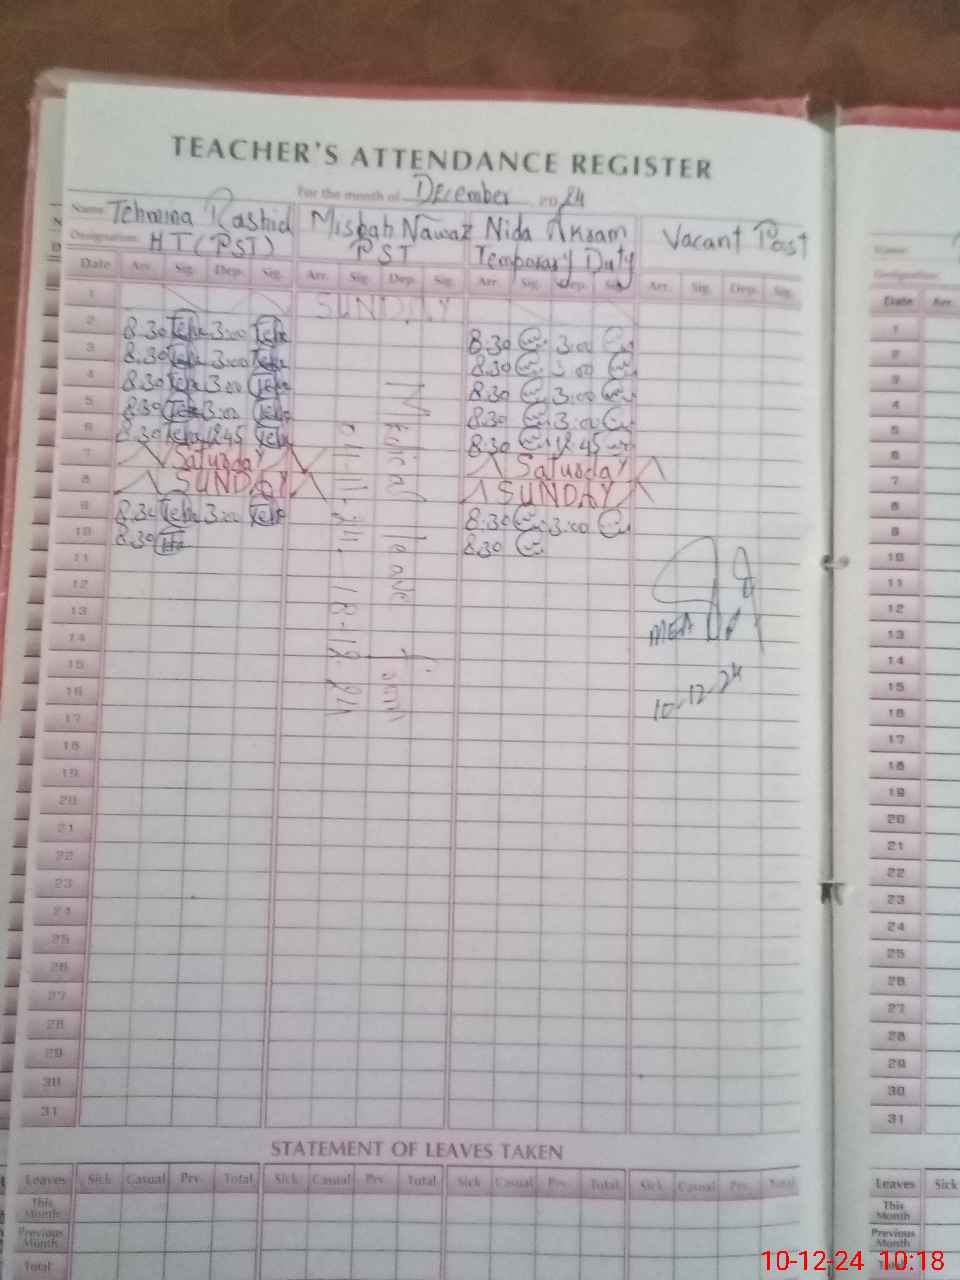 TEACHER'S ATTENDANCE REGISTER
For the month of December 2024
Name: Tehmina Rashid Misbah Nawaz Nida Akram Vacant Post
Designation: HT (PST) PST Temporary Duty
Date Arr. Sig. Dep. Sig. Arr. Sig. Dep. Sig. Arr. Sig. Dep. Sig. Arr. Sig. Dep. Sig.
1 SUNDAY
2 8:30 3:00 8:30 3:00
3 8:30 3:00 8:30 3:00
4 8:30 3:00 8:30 3:00
5 8:30 3:00 8:30 3:00
6 8:30 12:45 8:30 12:45
7 Saturday Saturday
8 SUNDAY SUNDAY
9 8:30 3:00 8:30 3:00
10 8:30 8:30
Medical leave from
MEA
10-12-24
11
12
13
14
15
16
17
18
19
20
21
22
23
24
25
26
27
28
29
30
31
STATEMENT OF LEAVES TAKEN
Leaves Sick Casual Prv. Total Sick Casual Prv. Total Sick Casual Prv. Total Sick Casual Prv. Total
This Month
Previous Month
Total
Name:
Designation:
Date Arr.
1
2
3
4
5
6
7
8
9
10
11
12
13
14
15
16
17
18
19
20
21
22
23
24
25
26
27
28
29
30
31
Leaves Sick
This Month
Previous Month
Total
10-12-24 10:18